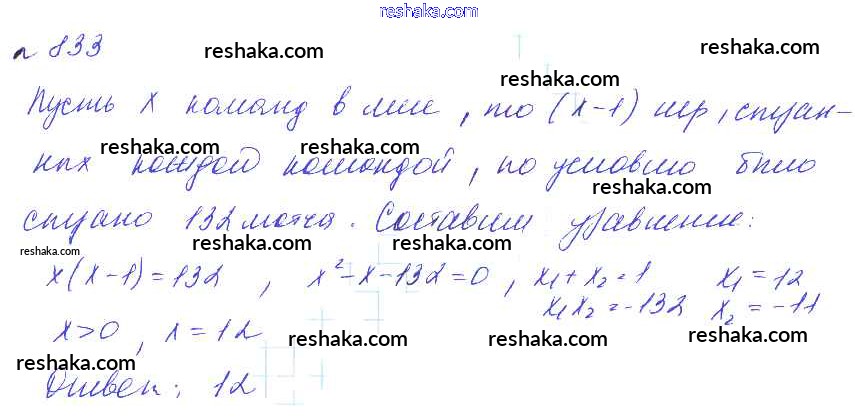 reshaka.com
n 833
reshaka.com
reshaka.com
Пусть x команд в лиге, то (x-1) игр, сыгран-
reshaka.com
ных каждой командой, по условию было
reshaka.com
reshaka.com
reshaka.com
сыграно 132 матча. Составим уравнение:
reshaka.com
reshaka.com
reshaka.com
x(x-1)=132, x²-x-132=0, x₁+x₂=1 x₁=12
x₁x₂=-132 x₂=-11
x>0, x=12
reshaka.com
reshaka.com
reshaka.com
Ответ: 12
reshaka.com